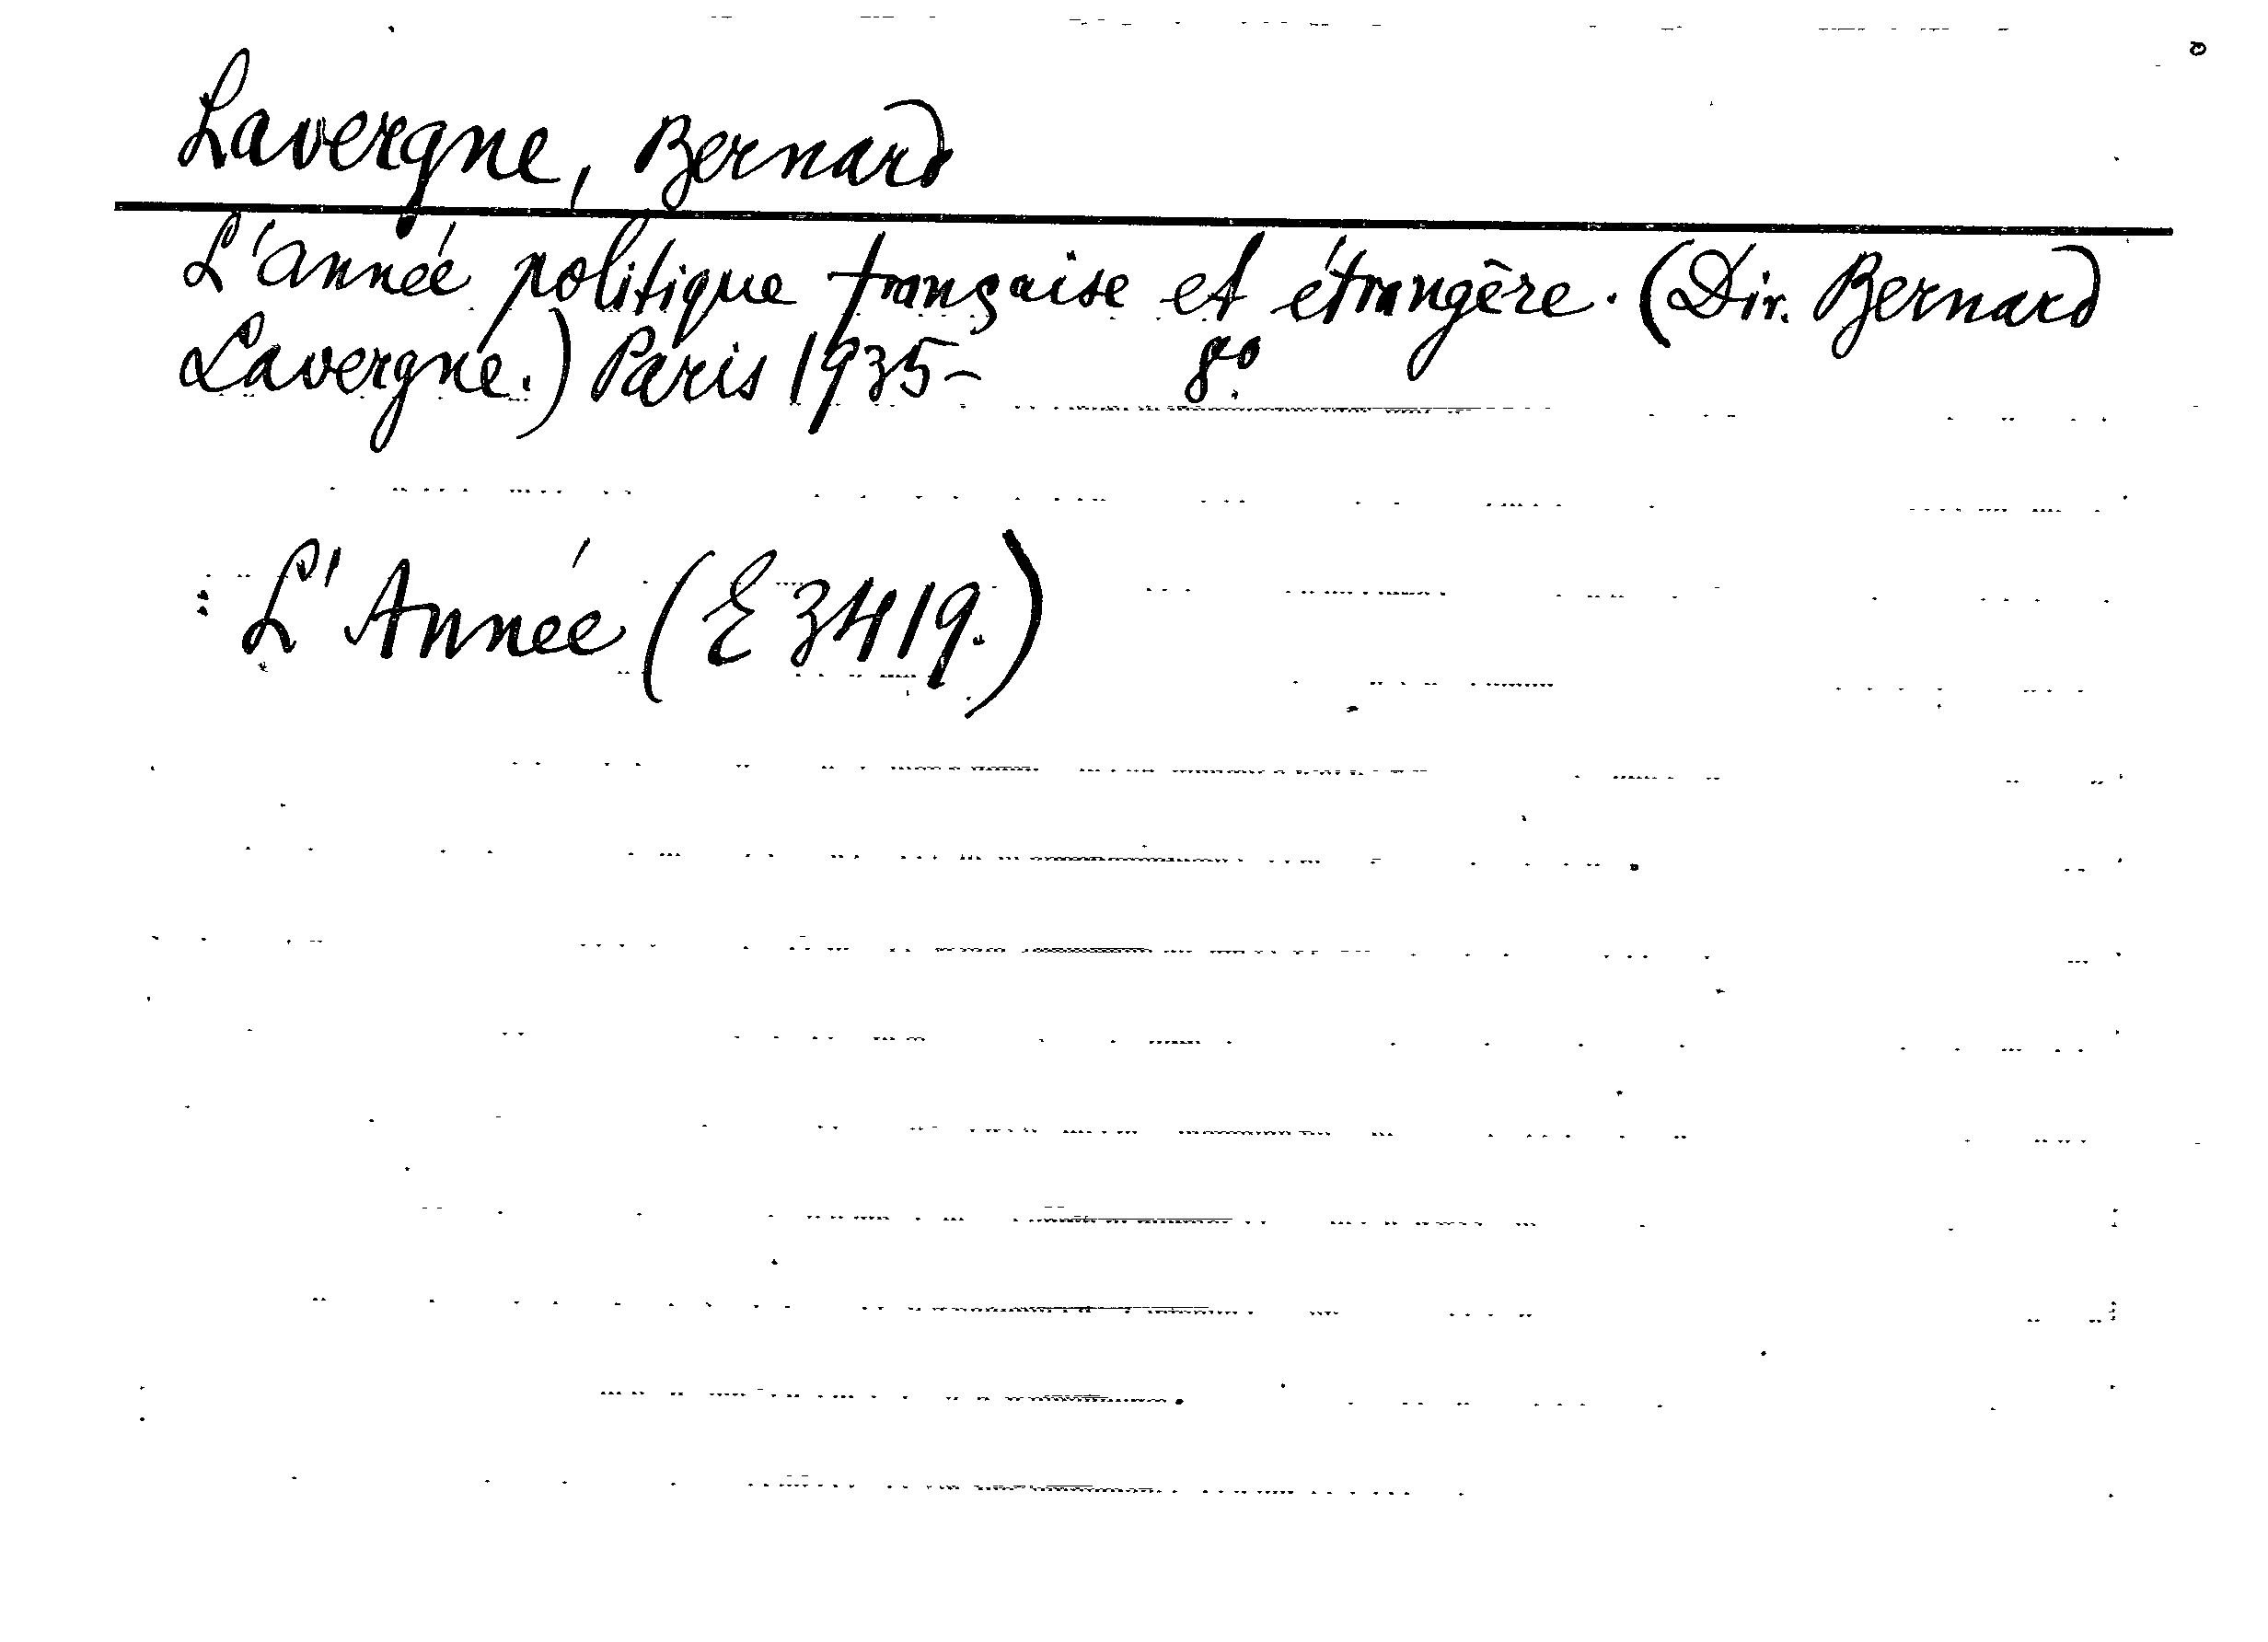 Lavergne, Bernard
L'année politique française et étrangère. (Dir. Bernard
Lavergne.) Paris 1935- 8o.
: L'Année (E 3419.)